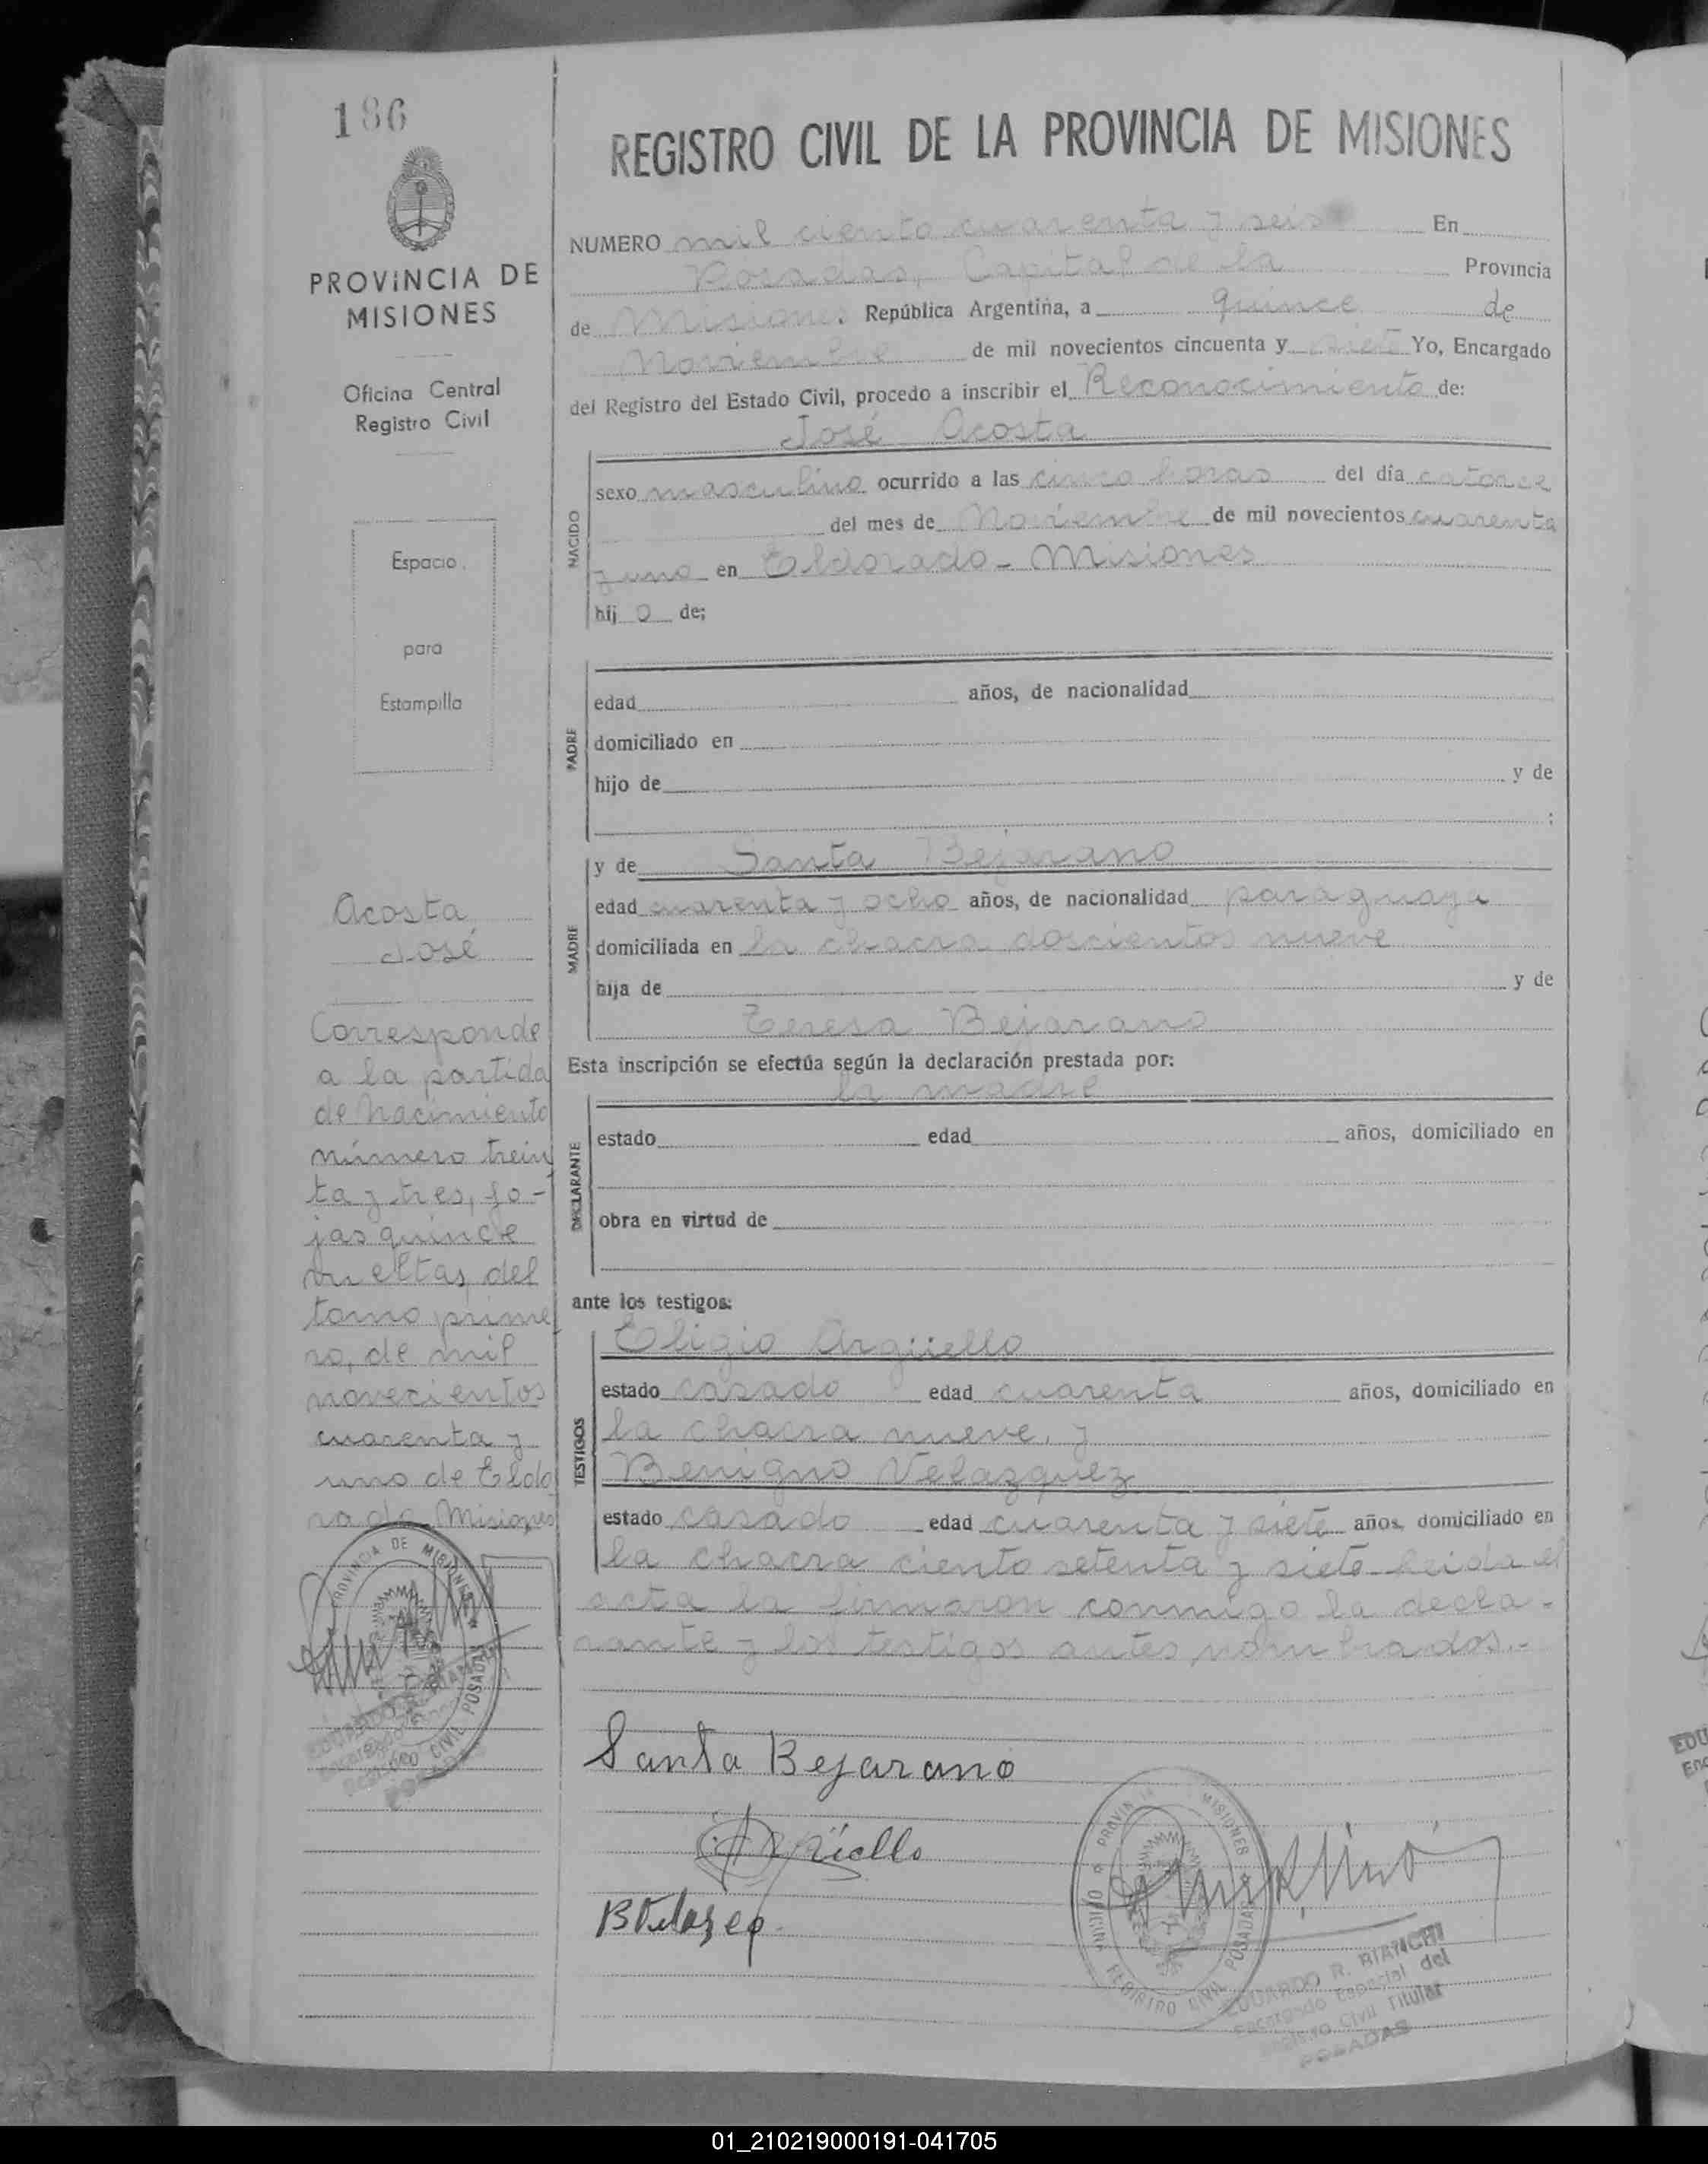 186
PROVINCIA DE
MISIONES
Oficina Central
Registro Civil
Espacio
para
Estampilla
Acosta
José
Corresponde
a la partida
de Nacimiento
número trein
ta y tres, fo-
jas quince
vueltas, del
tomo prime
ro, de mil
novecientos
cuarenta y
uno de Eldo
rado Misiones
PROVINCIA DE MISIONES
CIVIL POSADAS
REGISTRO CIVIL DE LA PROVINCIA DE MISIONES
NUMERO mil ciento cuarenta y seis En
Posadas, Capital de la Provincia
de Misiones. República Argentina, a quince de
Noviembre de mil novecientos cincuenta y siete Yo, Encargado
del Registro del Estado Civil, procedo a inscribir el Reconocimiento de:
José Acosta
NACIDO
sexo masculino ocurrido a las cinco horas del día catorce
del mes de Noviembre de mil novecientos cuarenta
y uno en Eldorado - Misiones
hij o de;
PADRE
edad años, de nacionalidad
domiciliado en
hijo de y de
;
MADRE
y de Santa Bejarano
edad cuarenta y ocho años, de nacionalidad paraguaya
domiciliada en la chacra doscientos nueve
hija de y de
Teresa Bejarano
Esta inscripción se efectúa según la declaración prestada por:
la madre
DECLARANTE
estado edad años, domiciliado en
obra en virtud de
ante los testigos:
TESTIGOS
Eligio Argüello
estado casado edad cuarenta años, domiciliado en
la chacra nueve, y
Benigno Velazquez
estado casado edad cuarenta y siete años, domiciliado en
la chacra ciento setenta y siete leida el
acta la firmaron conmigo la decla-
rante y los testigos antes nombrados.-
Santa Bejarano
Argüello
B Velazeq
MISIONES
POSADAS
EDUARDO R. BIANCHI
Encargado Especial del
Registro Civil Titular
POSADAS
01_210219000191-041705